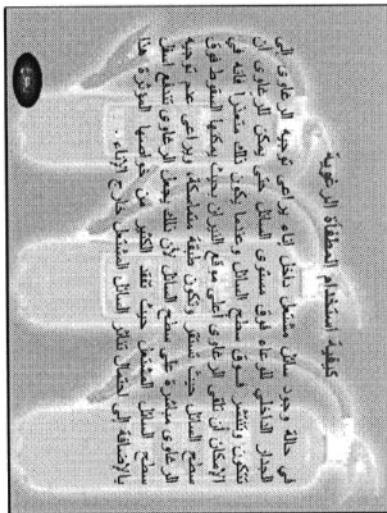 كيفية استخدام المطفأة الرغوية
في حالة وجود سائل مشتعل داخل إناء يراعى توجيه الرغاوى إلى
الجدار الداخلي للوعاء فوق مستوى السائل حتى يمكن للرغاوى أن
تتكون وتنتشر فوق سطح السائل وعندما يكون ذلك متعذراً فانه في
الإمكان أن تلقى الرغاوى أعلى موقع النيران بحيث يمكنها السقوط فوق
سطح السائل حيث تستقر وتكون طبقة متماسكة، ويراعى عدم توجيه
الرغاوى مباشرة على سطح السائل لأن ذلك يجعل الرغاوى تندفع أسفل
سطح السائل المشتعل حيث تفقد الكثير من خواصها المؤثرة هذا
بالإضافة إلى احتمال تناثر السائل المشتعل خارج الإناء .